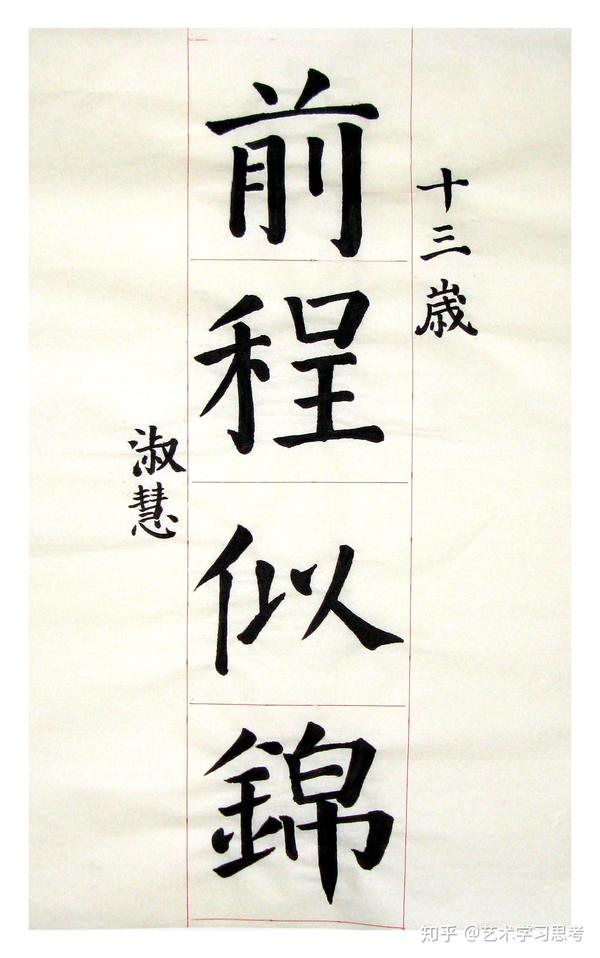 十三歳
前程似錦
淑慧
知乎 @艺术学习思考